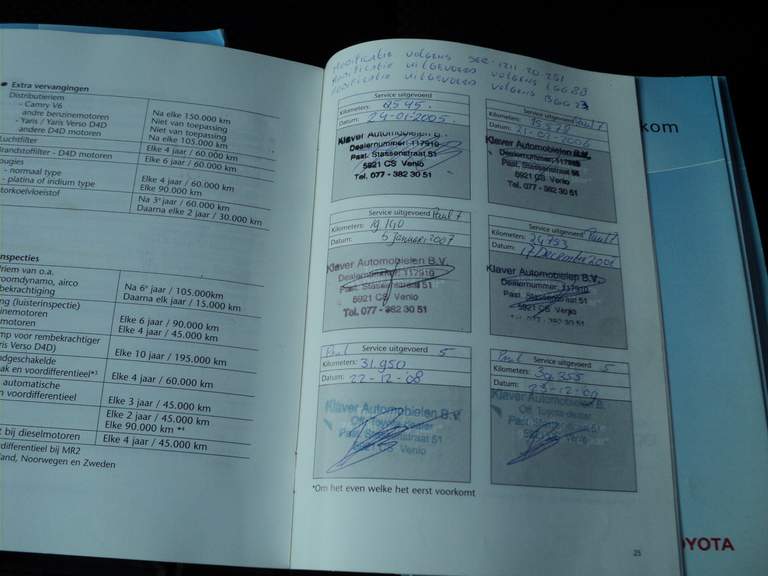 Extra vervangingen
Distributieriem
- Camry V6
andere benzinemotoren
- Yaris / Yaris Verso D4D
andere D4D motoren
Na elke 150.000 km
Niet van toepassing
Niet van toepassing
Na elke 105.000 km
Luchtfilter
Elke 4 jaar / 60.000 km
Brandstoffilter - D4D motoren
Elke 6 jaar / 60.000 km
ougies
- normaal type
- platina of iridium type
Elke 4 jaar / 60.000 km
Elke 90.000 km
otorkoelvloeistof
Na 3e jaar / 60.000 km
Daarna elke 2 jaar / 30.000 km
nspecties
riem van o.a.
roomdynamo, airco
bekrachtiging
Na 6e jaar / 105.000km
Daarna elk jaar / 15.000 km
ng (luisterinspectie)
inemotoren
motoren
Elke 6 jaar / 90.000 km
Elke 4 jaar / 45.000 km
mp voor rembekrachtiger
Verso D4D)
Elke 10 jaar / 195.000 km
ndgeschakelde
ak en voordifferentieel*3
Elke 4 jaar / 60.000 km
automatische
n voordifferentieel
Elke 3 jaar / 45.000 km
Elke 2 jaar / 45.000 km
Elke 90.000 km *4
t bij dieselmotoren
Elke 4 jaar / 45.000 km
differentieel bij MR2
land, Noorwegen en Zweden
modificatie volgens
modificatie uitgevoerd volgens
modificatie uitgevoerd volgens
Service uitgevoerd
Kilometers:
Datum: 24-01-2005
Klaver Automobielen B.V.
Dealernummer: 117910
Past. Stassenstraat 51
5921 CS Venlo
Tel. 077 - 382 30 51
Service uitgevoerd Paul
Kilometers:
Datum:
Klaver Automobielen B.V.
Dealernummer: 117910
Past. Stassenstraat 51
5921 CS Venlo
Tel. 077 - 382 30 51
Service uitgevoerd Paul
Kilometers: 19.140
Datum: 5 januari 2007
Klaver Automobielen B.V.
Dealernummer: 117910
Past. Stassenstraat 51
5921 CS Venlo
Tel. 077 - 382 30 51
Service uitgevoerd Paul
Kilometers: 24753
Datum: 17 December
Klaver Automobielen B.V.
Dealernummer: 117910
Past. Stassenstraat 51
5921 CS Venlo
Paul Service uitgevoerd 5
Kilometers: 31.950
Datum: 22-12-08
Klaver Automobielen B.V.
Off. Toyota-dealer
Past. Stassenstraat 51
5921 CS Venlo
Paul Service uitgevoerd 5
Kilometers: 39.355
Datum: 23-12-09
Klaver Automobielen B.
Off. Toyota-dealer
Past. Stassenstraat 51
5921 CS Venlo
*Om het even welke het eerst voorkomt
25
kom
YOTA